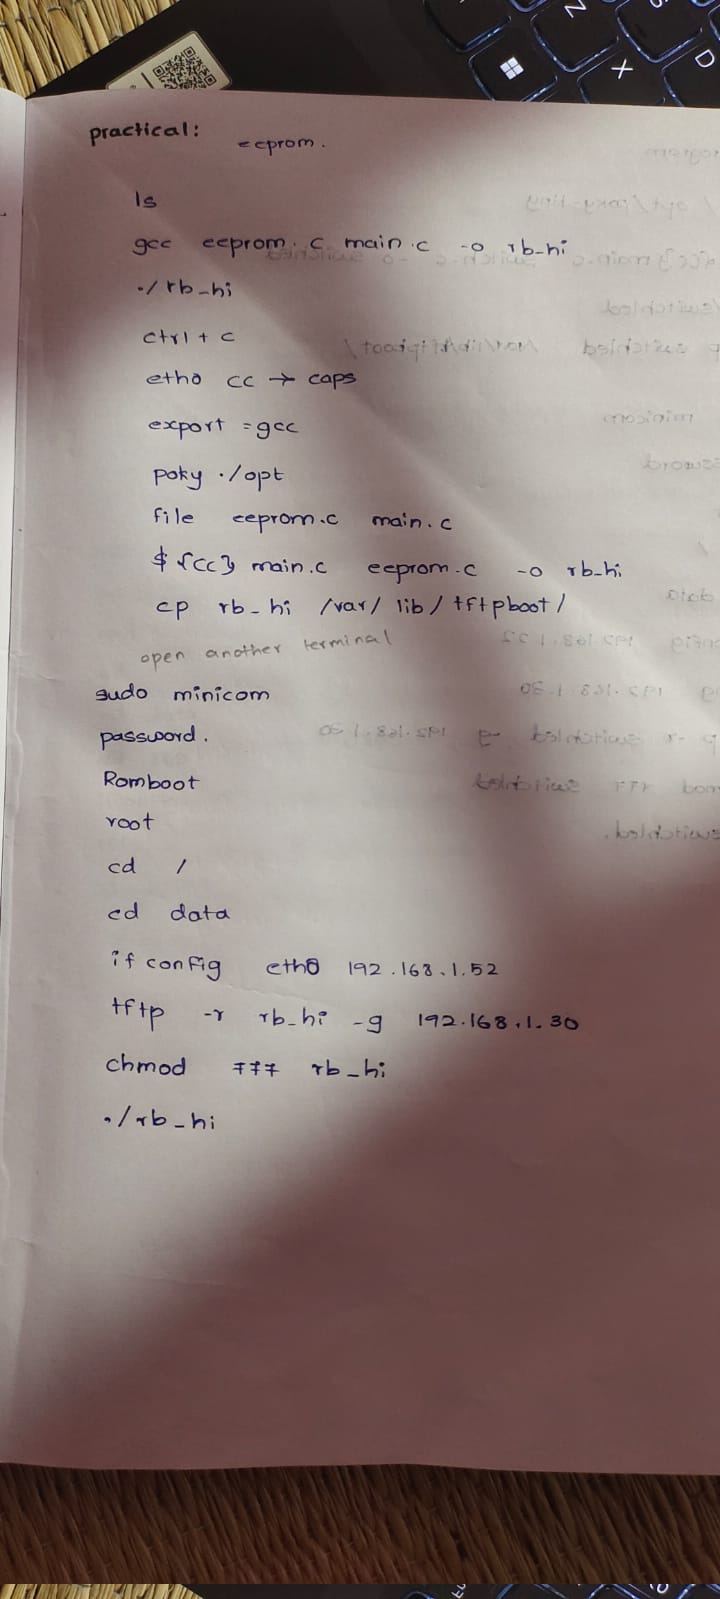 practical:
eeprom.
ls
gcc eeprom.c main.c -o rb_hi
./rb_hi
ctrl + c
etho cc → caps
export =gcc
poky ./opt
file eeprom.c main.c
${cc} main.c eeprom.c -o rb_hi
cp rb_hi /var/lib/tftpboot/
open another terminal
sudo minicom
password.
Romboot
root
cd /
cd data
ifconfig eth0 192.168.1.52
tftp -r rb_hi -g 192.168.1.30
chmod 777 rb_hi
./rb_hi